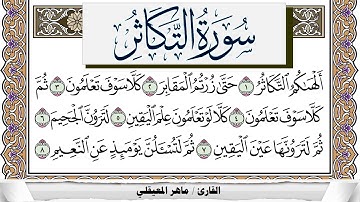 سُورَةُ التَّكَاثُر
أَلْهَىٰكُمُ ٱلتَّكَاثُرُ ١ حَتَّىٰ زُرْتُمُ ٱلْمَقَابِرَ ٢ كَلَّا سَوْفَ تَعْلَمُونَ ٣ ثُمَّ
كَلَّا سَوْفَ تَعْلَمُونَ ٤ كَلَّا لَوْ تَعْلَمُونَ عِلْمَ ٱلْيَقِينِ ٥ لَتَرَوُنَّ ٱلْجَحِيمَ ٦
ثُمَّ لَتَرَوُنَّهَا عَيْنَ ٱلْيَقِينِ ٧ ثُمَّ لَتُسْـَٔلُنَّ يَوْمَئِذٍ عَنِ ٱلنَّعِيمِ ٨
القارئ / ماهر المعيقلي